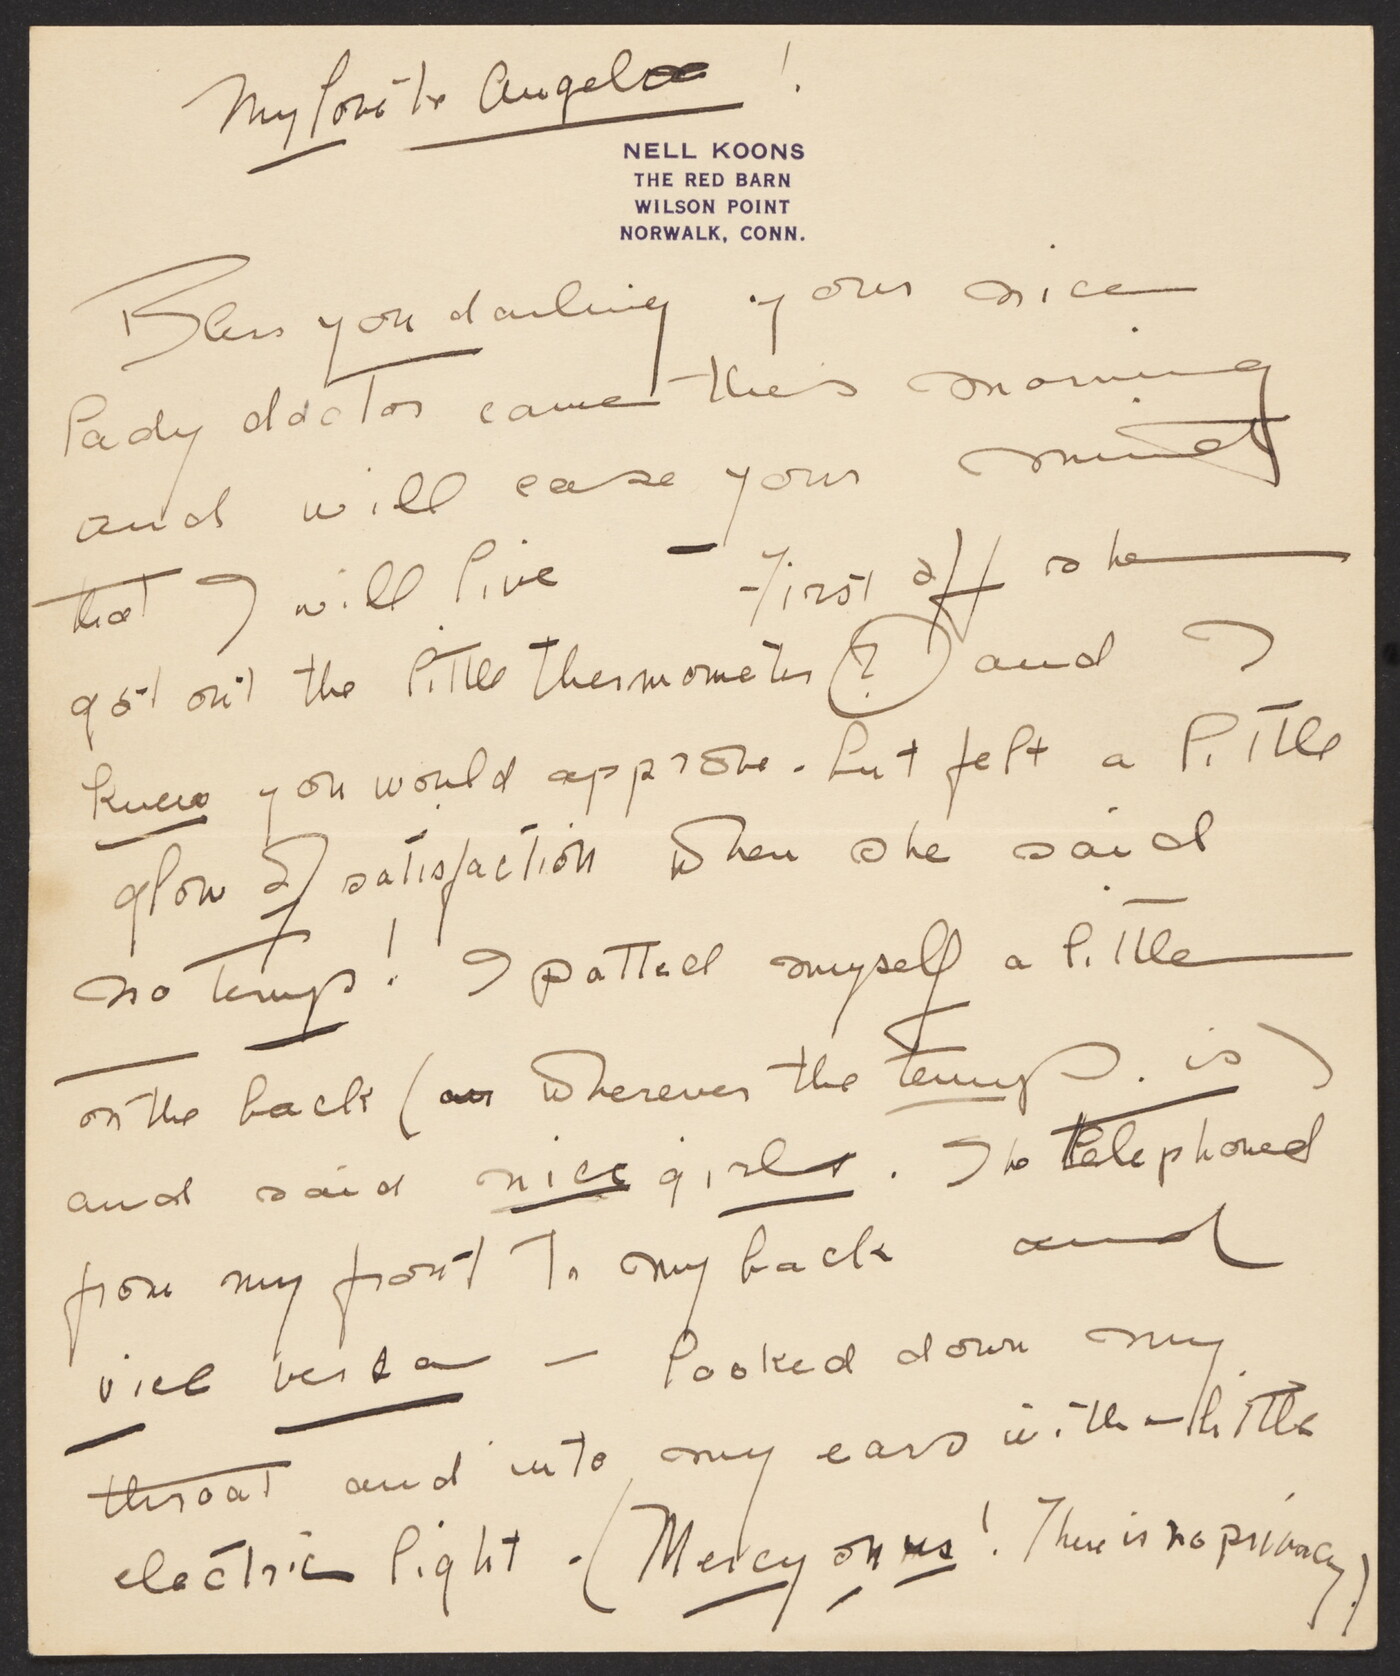 My love to Angel !
NELL KOONS
THE RED BARN
WILSON POINT
NORWALK, CONN.
Bless you darling your nice
lady doctor came this morning
and will ease your mind
that I will live – First off she
got out the little thermometer (?) and I
knew you would approve. but felt a little
glow of satisfaction when she said
no temp! I patted myself a little
on the back (or wherever the temp. is)
and said nice girls. She telephoned
from my front to my back and
vice versa – looked down my
throat and into my ears with a little
electric light - (Mercy on us! There is no privacy.)